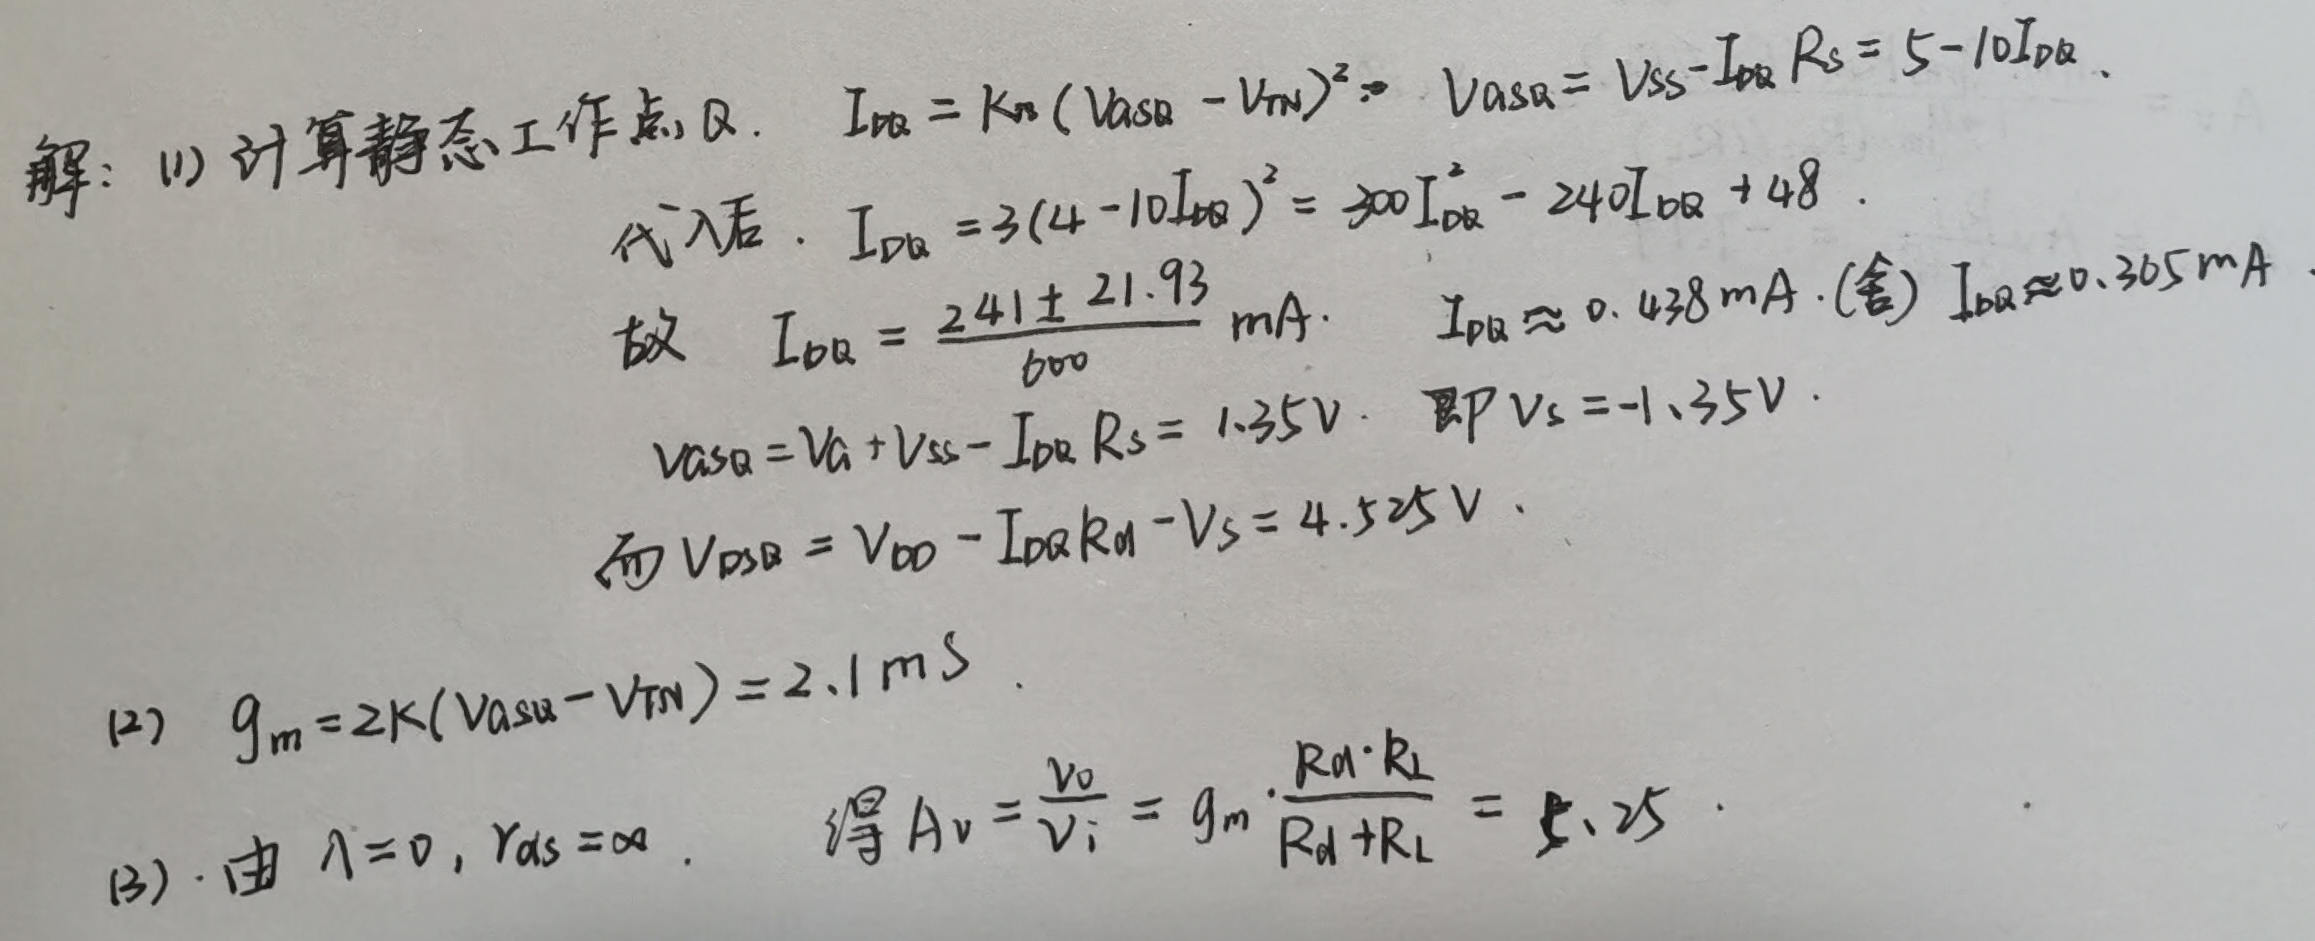 解：(1) 计算静态工作点Q. I_DQ = Kn(VGSQ - VTN)²， VGSQ = VSS - I_DQ RS = 5 - 10I_DQ.
代入后. I_DQ = 3(4 - 10I_DQ)² = 300I_DQ² - 240I_DQ + 48.
故 I_DQ = (241 ± 21.93)/600 mA. I_DQ ≈ 0.438mA.(舍) I_DQ ≈ 0.365mA.
VGSQ = VG + VSS - I_DQ RS = 1.35V. 即 VS = -1.35V.
而 VDSQ = VDD - I_DQ Rd - VS = 4.525V.
(2) gm = 2K(VGSQ - VTN) = 2.1mS.
(3). 由 λ=0, rds=∞. 得 Av = vo/vi = gm · (Rd·RL)/(Rd+RL) = 5.25.